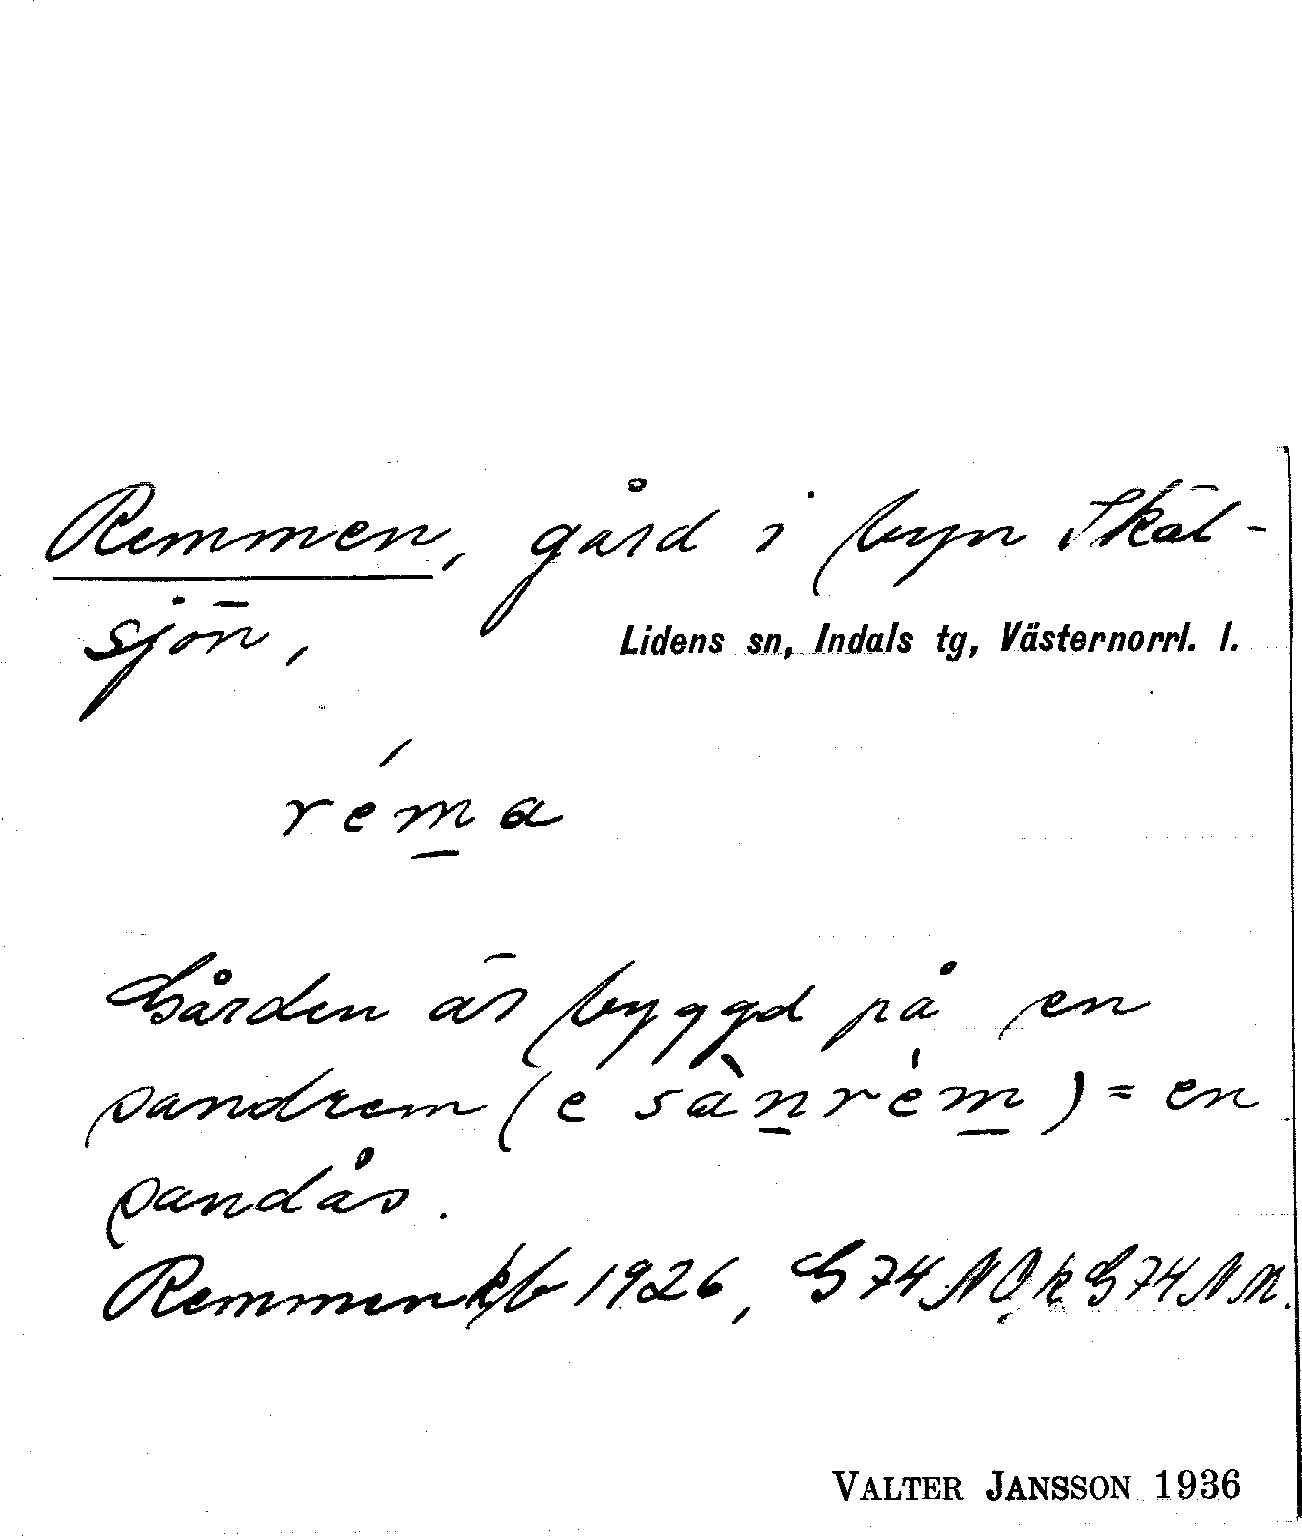 Remmen, gård i byn Skäl-
sjön,
Lidens sn, Indals tg, Västernorrl. l.
réma
Gården är byggd på en
sandrem (e sànrèm) = en
sandås.
Remmen kb 1926, G 74 NO, k G 74 N M.
VALTER JANSSON 1936